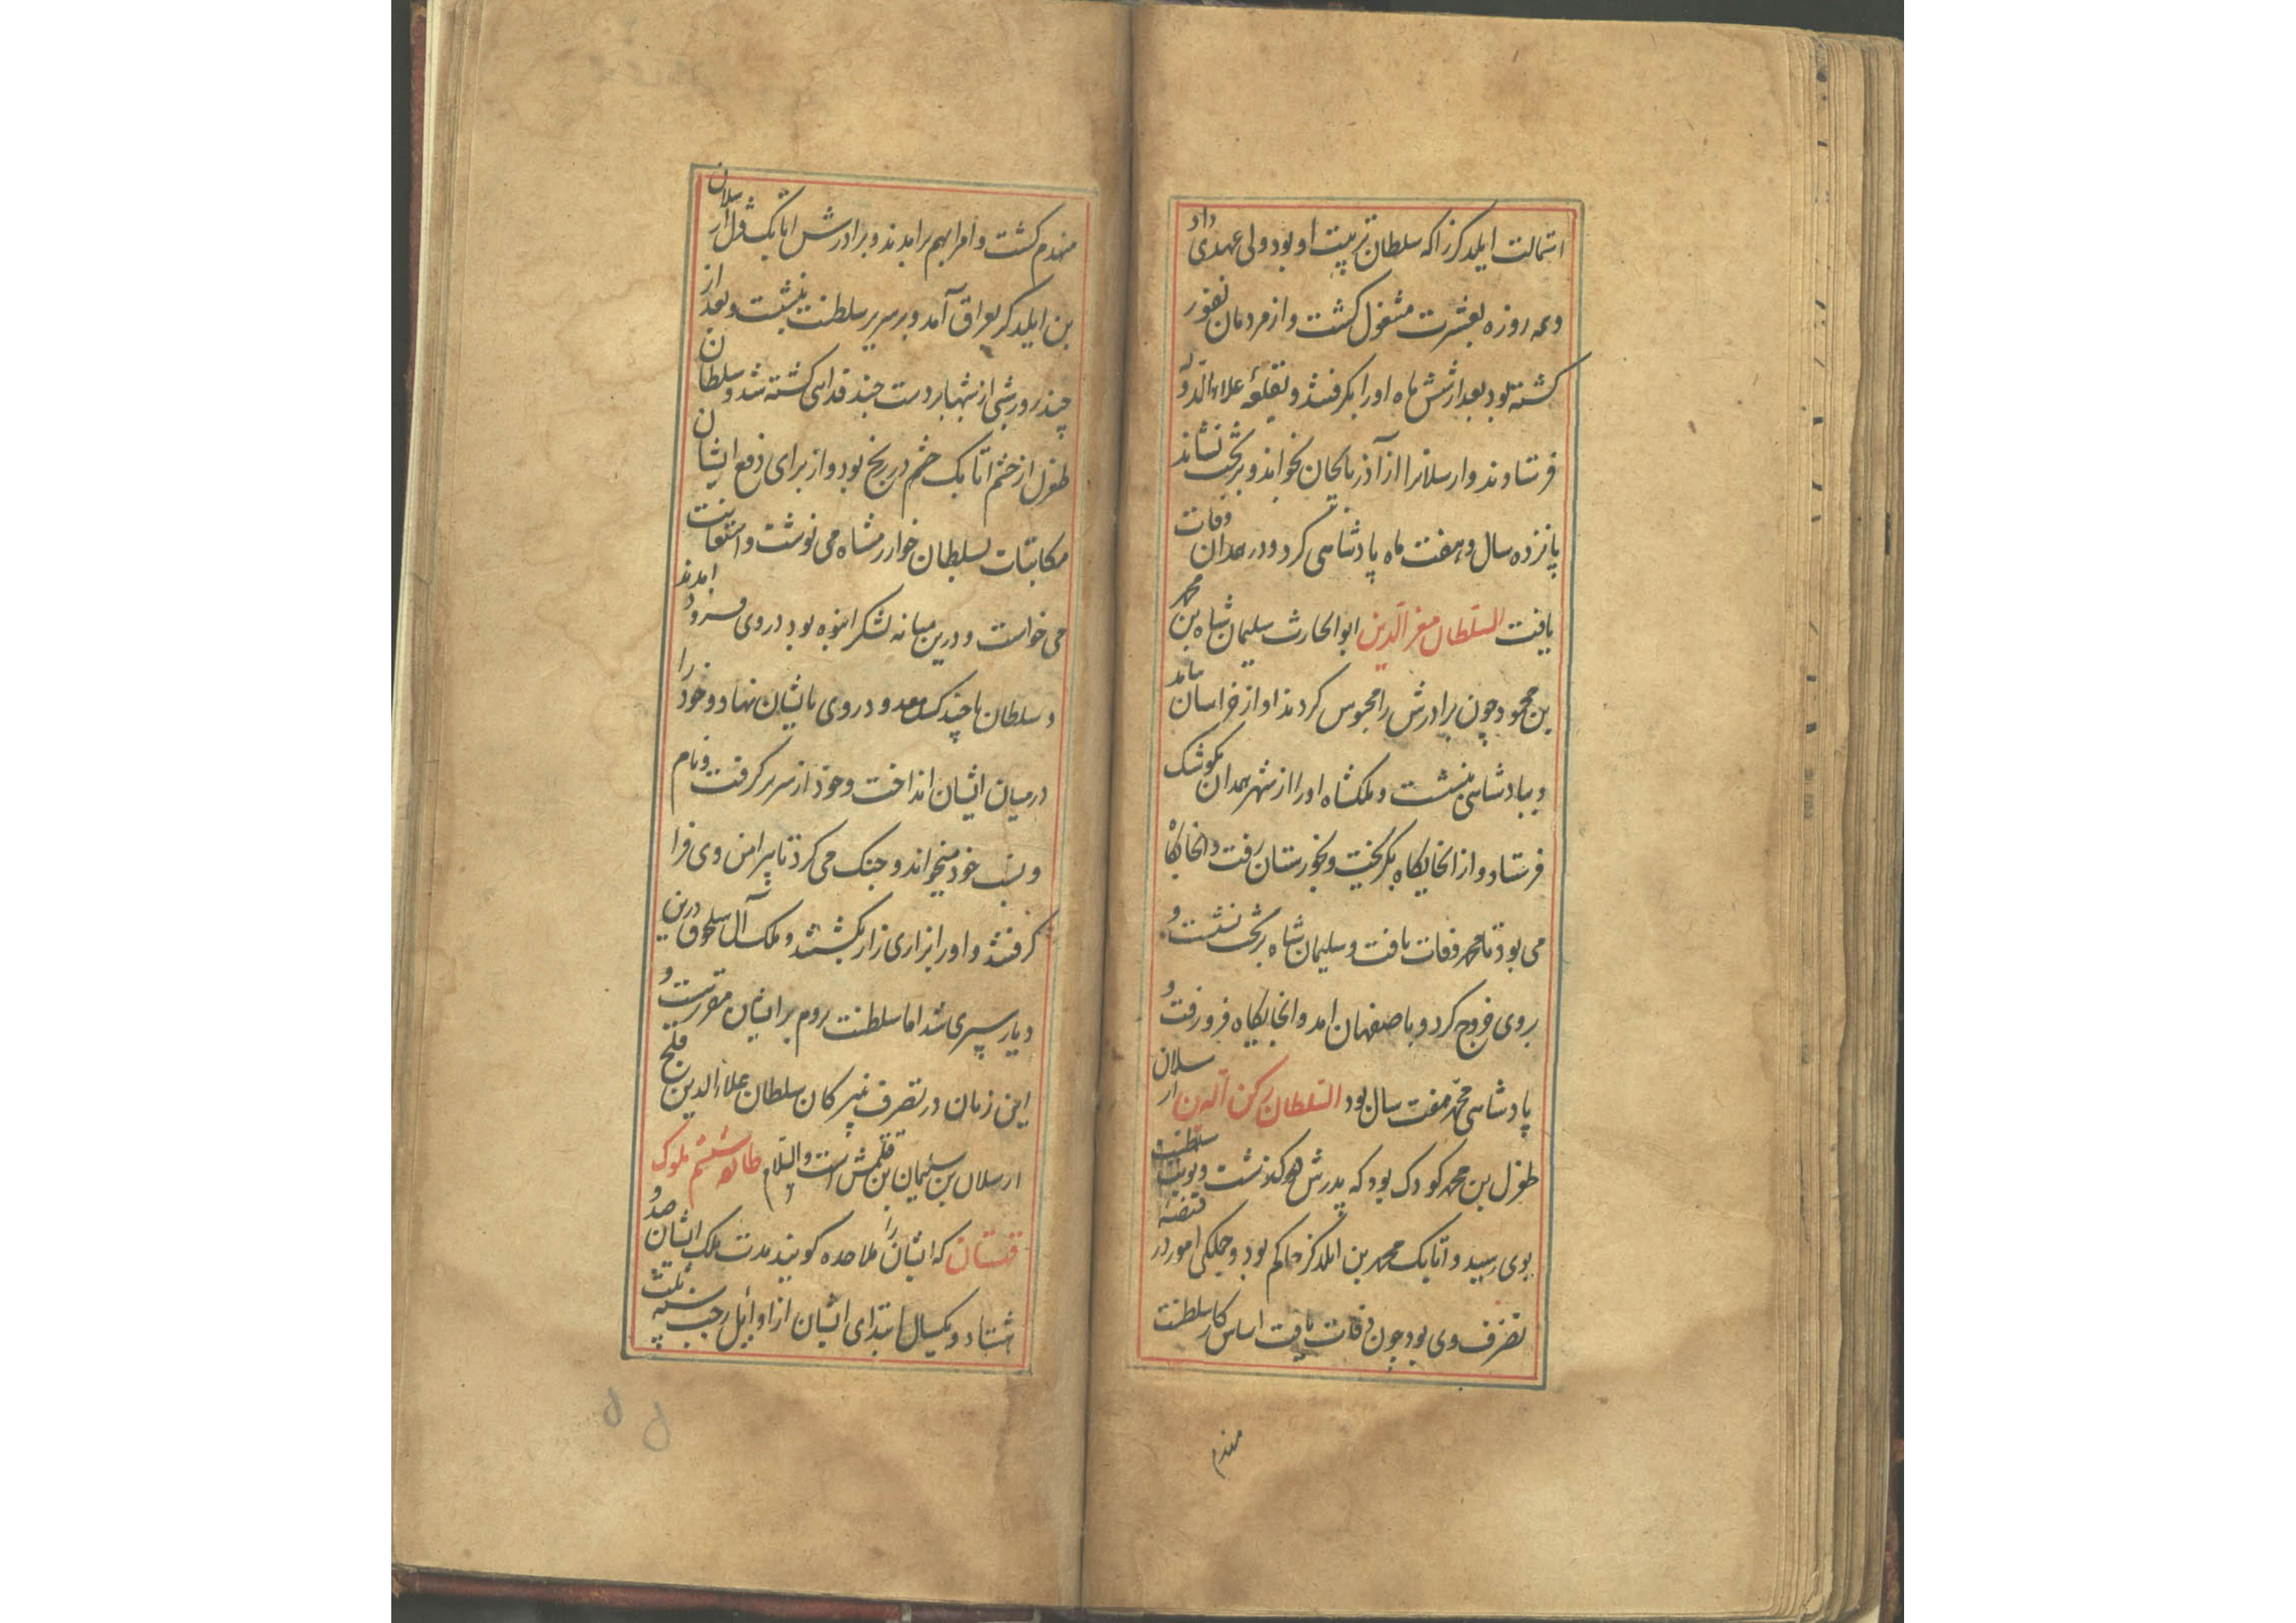 استمالت ایلدکز را که سلطان تربیت او بود ولی عهدی داد
و همه روزه بعشرت مشغول کشت و از مردمان نفور
کشته بود بعد از شش ماه او را بکرفتند و بقلعهٔ علاء الدوله
فرستادند و ارسلانرا از آذربایجان بخواندند و بر تخت نشاند
پانزده سال و هفت ماه پادشاهی کرد و در همدان وفات
یافت السلطان معز الدین ابو الحارث سلیمان شاه بن محمد
بن محمود چون برادرش را محبوس کردند او از خراسان بیامد
و بپادشاهی بنشست و ملکشاه او را از شهر همدان بکوشک
فرستاد و از انجایکاه بکریخت و بخوزستان رفت و انجایکاه
می بود تا محمد وفات یافت و سلیمان شاه بر تخت نشست و
بروی خروج کرد و باصفهان امد و انجایکاه فرو رفت و
پادشاهی محمد هفت سال بود السلطان رکن الدین ارسلان
طغرل بن محمد کودک بود که پدرش بکذشت و نوبت سلطنت
بوی رسید و اتابک محمد بن ایلدکز حاکم بود و جملکی امور در قبضهٔ
تصرف وی بود چون وفات یافت اساس کار سلطنت
منهدم
منهدم کشت و امرا بهم برامدند و برادرش اتابک قزل ارسلان
بن ایلدکز بعراق آمد و بر سریر سلطنت بنشست و بعد از
چند روز شبی از شبها بر دست چند فدایی کشته شد و سلطان
طغرل از خشم اتابک خشم در رنج بود و از برای دفع ایشان
مکاتبات بسلطان خوارزمشاه می نوشت و استعانت
می خواست و درین میانه لشکر انبوه بود در روی فرود امدند
و سلطان با چند کس معدود روی بایشان نهاد و خود را
در میان ایشان انداخت و خود از سر بر کرفت و نام
و نسب خود میخواند و جنک می کرد تا پیرامن وی فرا
کرفتند و او را بزاری زار بکشتند و ملک آل سلجوق درین
دیار سپری شد اما سلطنت روم بر ایشان مقررست و
این زمان در تصرف نبیرکان سلطان علاء الدین قلج
ارسلان بن سلیمان بن قتلمش است والسلام طایفه ششم ملوک
قهستان که ایشان را ملاحده کویند مدت ملک ایشان صد و
هشتاد و یکسال ابتدای ایشان از اوایل رجب سنه ثلث